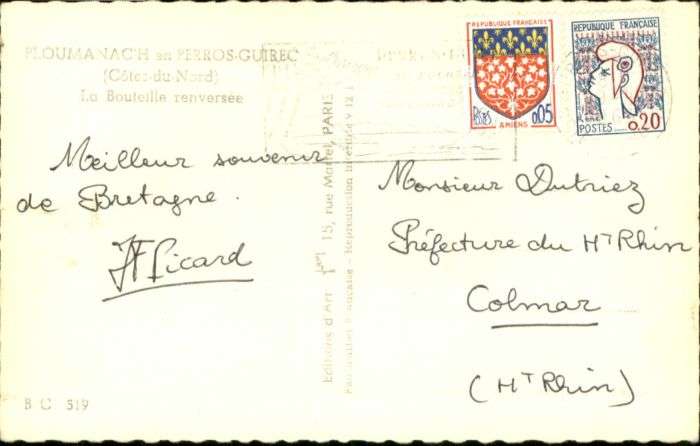 PLOUMANAC'H en PERROS-GUIREC
(Côtes-du-Nord)
La Bouteille renversée
Meilleur souvenir
de Bretagne.
JF Picard
B C 519
Editions d'Art
15, rue Martel, PARIS
Fabrication Française - Reproduction interdite
REPUBLIQUE FRANÇAISE
POSTES
0,05
AMIENS
REPUBLIQUE FRANÇAISE
POSTES
0,20
Monsieur Dutriez
Préfecture du Ht Rhin
Colmar
(Ht Rhin)